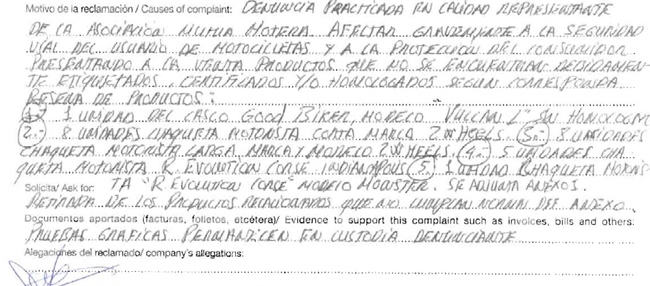 Motivo de la reclamación / Causes of complaint: DENUNCIA PRACTICADA EN CALIDAD REPRESENTANTE
DE LA ASOCIACION MUTUA MOTERA. AFECTAR GRAVEMENTE A LA SEGURIDAD
VIAL DEL USUARIO DE MOTOCICLETAS Y A LA PROTECCION DEL CONSUMIDOR
PRESENTANDO A LA VENTA PRODUCTOS QUE NO SE ENCUENTRAN DEBIDAMEN-
TE ETIQUETADOS, CERTIFICADOS Y/O HOMOLOGADOS SEGUN CORRESPONDA
RESEÑA DE PRODUCTOS:
1 UNIDAD DEL CASCO GOOD BIKER, MODELO "VULCAN L" SIN HOMOLOGAR
2.- 8 UNIDADES CHAQUETA MOTORISTA CORTA MARCA 2 WHEELS. 3.- 8 UNIDADES
CHAQUETA MOTORISTA LARGA, MARCA Y MODELO 2 WHEELS. 4.- 5 UNIDADES CHA-
QUETA MOTORISTA R. EVOLUTION CORSE INDIANAPOLIS 5. 1 UNIDAD CHAQUETA MOTORIS-
Solicita/ Ask for: TA "R. EVOLUTION CORSE" MODELO MONSTER. SE ADJUNTA ANEXOS.
RETIRADA DE LOS PRODUCTOS RELACIONADOS QUE NO CUMPLAN NORMATIVA ANEXO
Documentos aportados (facturas, folletos, etcétera)/ Evidence to support this complaint such as invoices, bills and others:
PRUEBAS GRAFICAS PERMANECEN EN CUSTODIA DENUNCIANTE
Alegaciones del reclamado/ company's allegations: